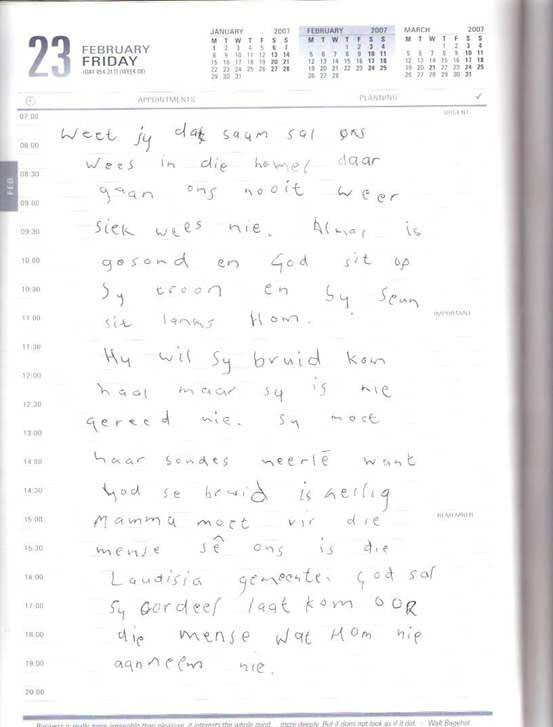 JANUARY 2007
M T W T F S S
1 2 3 4 5 6 7
8 9 10 11 12 13 14
15 16 17 18 19 20 21
22 23 24 25 26 27 28
29 30 31
FEBRUARY 2007
M T W T F S S
1 2 3 4
5 6 7 8 9 10 11
12 13 14 15 16 17 18
19 20 21 22 23 24 25
26 27 28
MARCH 2007
M T W T F S S
1 2 3 4
5 6 7 8 9 10 11
12 13 14 15 16 17 18
19 20 21 22 23 24 25
26 27 28 29 30 31
23 FEBRUARY
FRIDAY
(DAY 054-311) (WEEK 08)
APPOINTMENTS PLANNING
URGENT
FEB
07:00
Weet jy dat saam sal ons
08:00
Wees in die hemel daar
08:30
gaan ons nooit weer
09:00
siek wees nie. Almal is
09:30
10:00 gesond en God sit op
10:30 Sy troon en Sy Seun
IMPORTANT
11:00 sit langs Hom.
11:30
Hy wil Sy bruid kom
12:00
haal maar sy is nie
12:30
gereed nie. Sy moet
13:00
14:00 haar sondes neerlê want
14:30 God se bruid is heilig
REMEMBER
15:00 Mamma moet vir die
15:30 mense sê ons is die
16:00 Laudisia gemeente. God sal
17:00 Sy oordeel laat kom OOR
18:00 die mense wat Hom nie
19:00 aanneem nie.
20:00
Business is really more agreeable than pleasure; it interests the whole mind ... more deeply. But it does not look as if it did. - Walt Bagehot